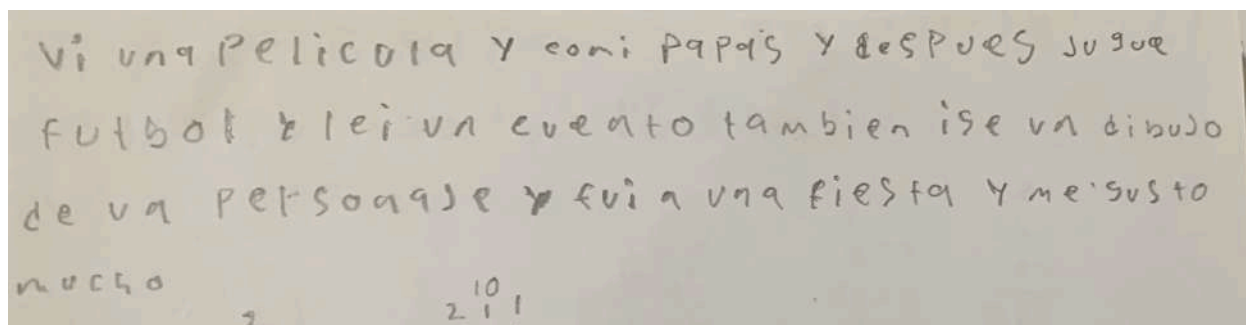 vi una Pelicola y comi papas y despues jugue
futbol y lei un cuento tambien ise un dibujo
de un personaje y fui a una fiesta y me susto
mucho
10
2 1 1